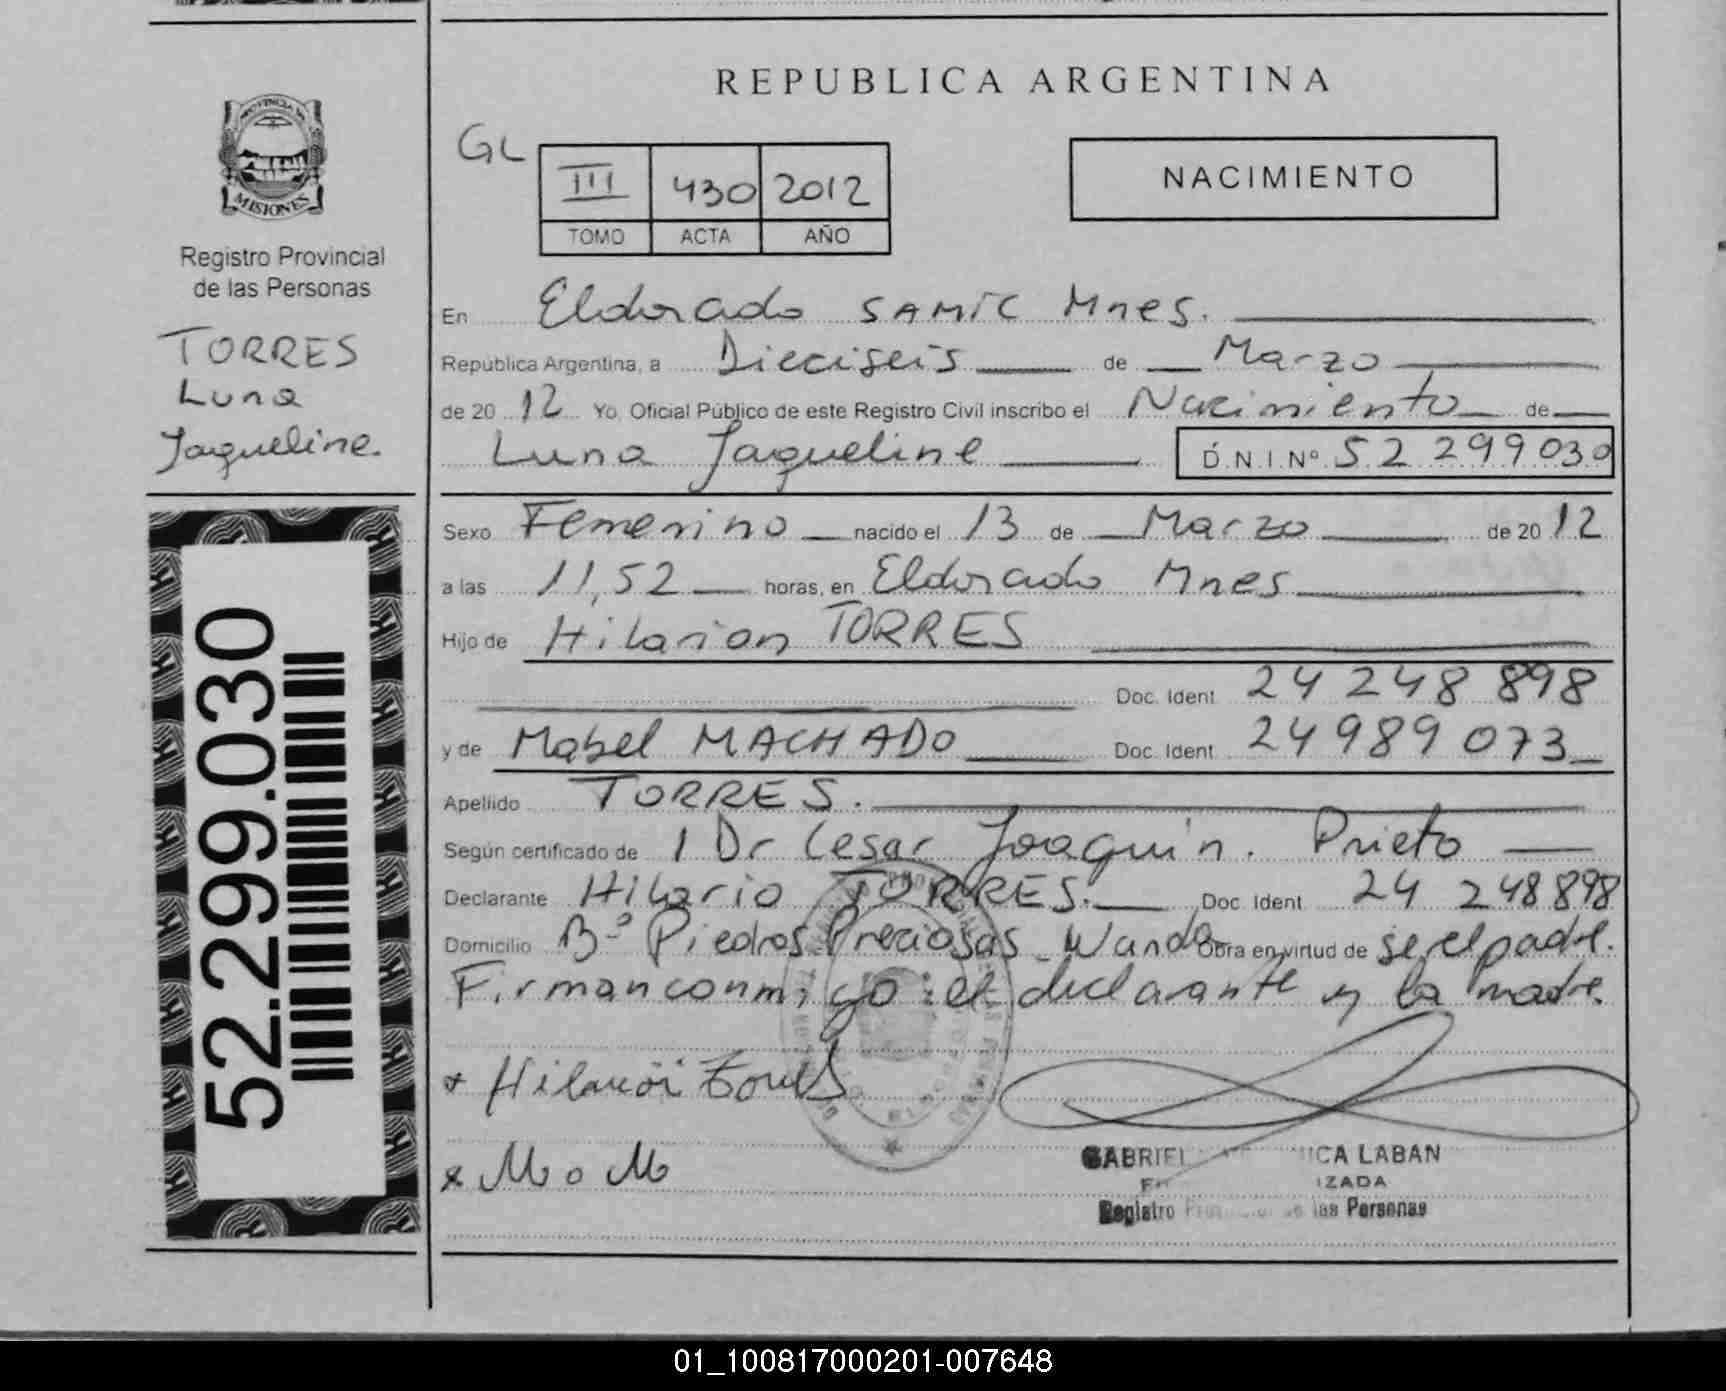 REPUBLICA ARGENTINA
MISIONES
Registro Provincial
de las Personas
TORRES
Luna
Jaqueline.
52.299.030
GL
III 430 2012
TOMO ACTA AÑO
NACIMIENTO
En Eldorado SAMIC Mnes.
República Argentina, a Dieciseis de Marzo
de 20 12 Yo, Oficial Público de este Registro Civil inscribo el Nacimiento de
Luna Jaqueline D.N.I.Nº 52 299030
Sexo Femenino nacido el 13 de Marzo de 20 12
a las 11,52 horas, en Eldorado Mnes
Hijo de Hilarion TORRES
Doc. Ident. 24 248 898
y de Mabel MACHADO Doc. Ident. 24 989 073
Apellido TORRES.
Según certificado de 1 Dr Cesar Joaquin. Prieto
Declarante Hilario TORRES. Doc. Ident. 24 248898
Domicilio Bº Piedras Preciosas Wanda Obra en virtud de ser el padre.
Firman conmigo: el declarante y la madre.
x Hilarion Torres
x M o M
GABRIEL LABAN
Registro de las Personas
01_100817000201-007648